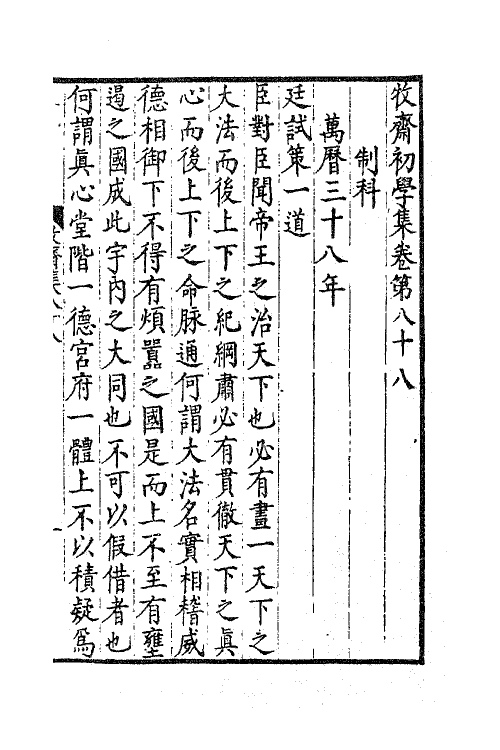 牧齋初學集卷第八十八
制科
萬曆三十八年
廷試策一道
臣對臣聞帝王之治天下也必有畫一天下之
大法而後上下之紀綱肅必有貫徹天下之真
心而後上下之命脉通何謂大法名實相稽威
德相御下不得有煩囂之國是而上不至有壅
遏之國成此宇內之大同也不可以假借者也
何謂真心堂階一德宮府一體上不以積疑爲